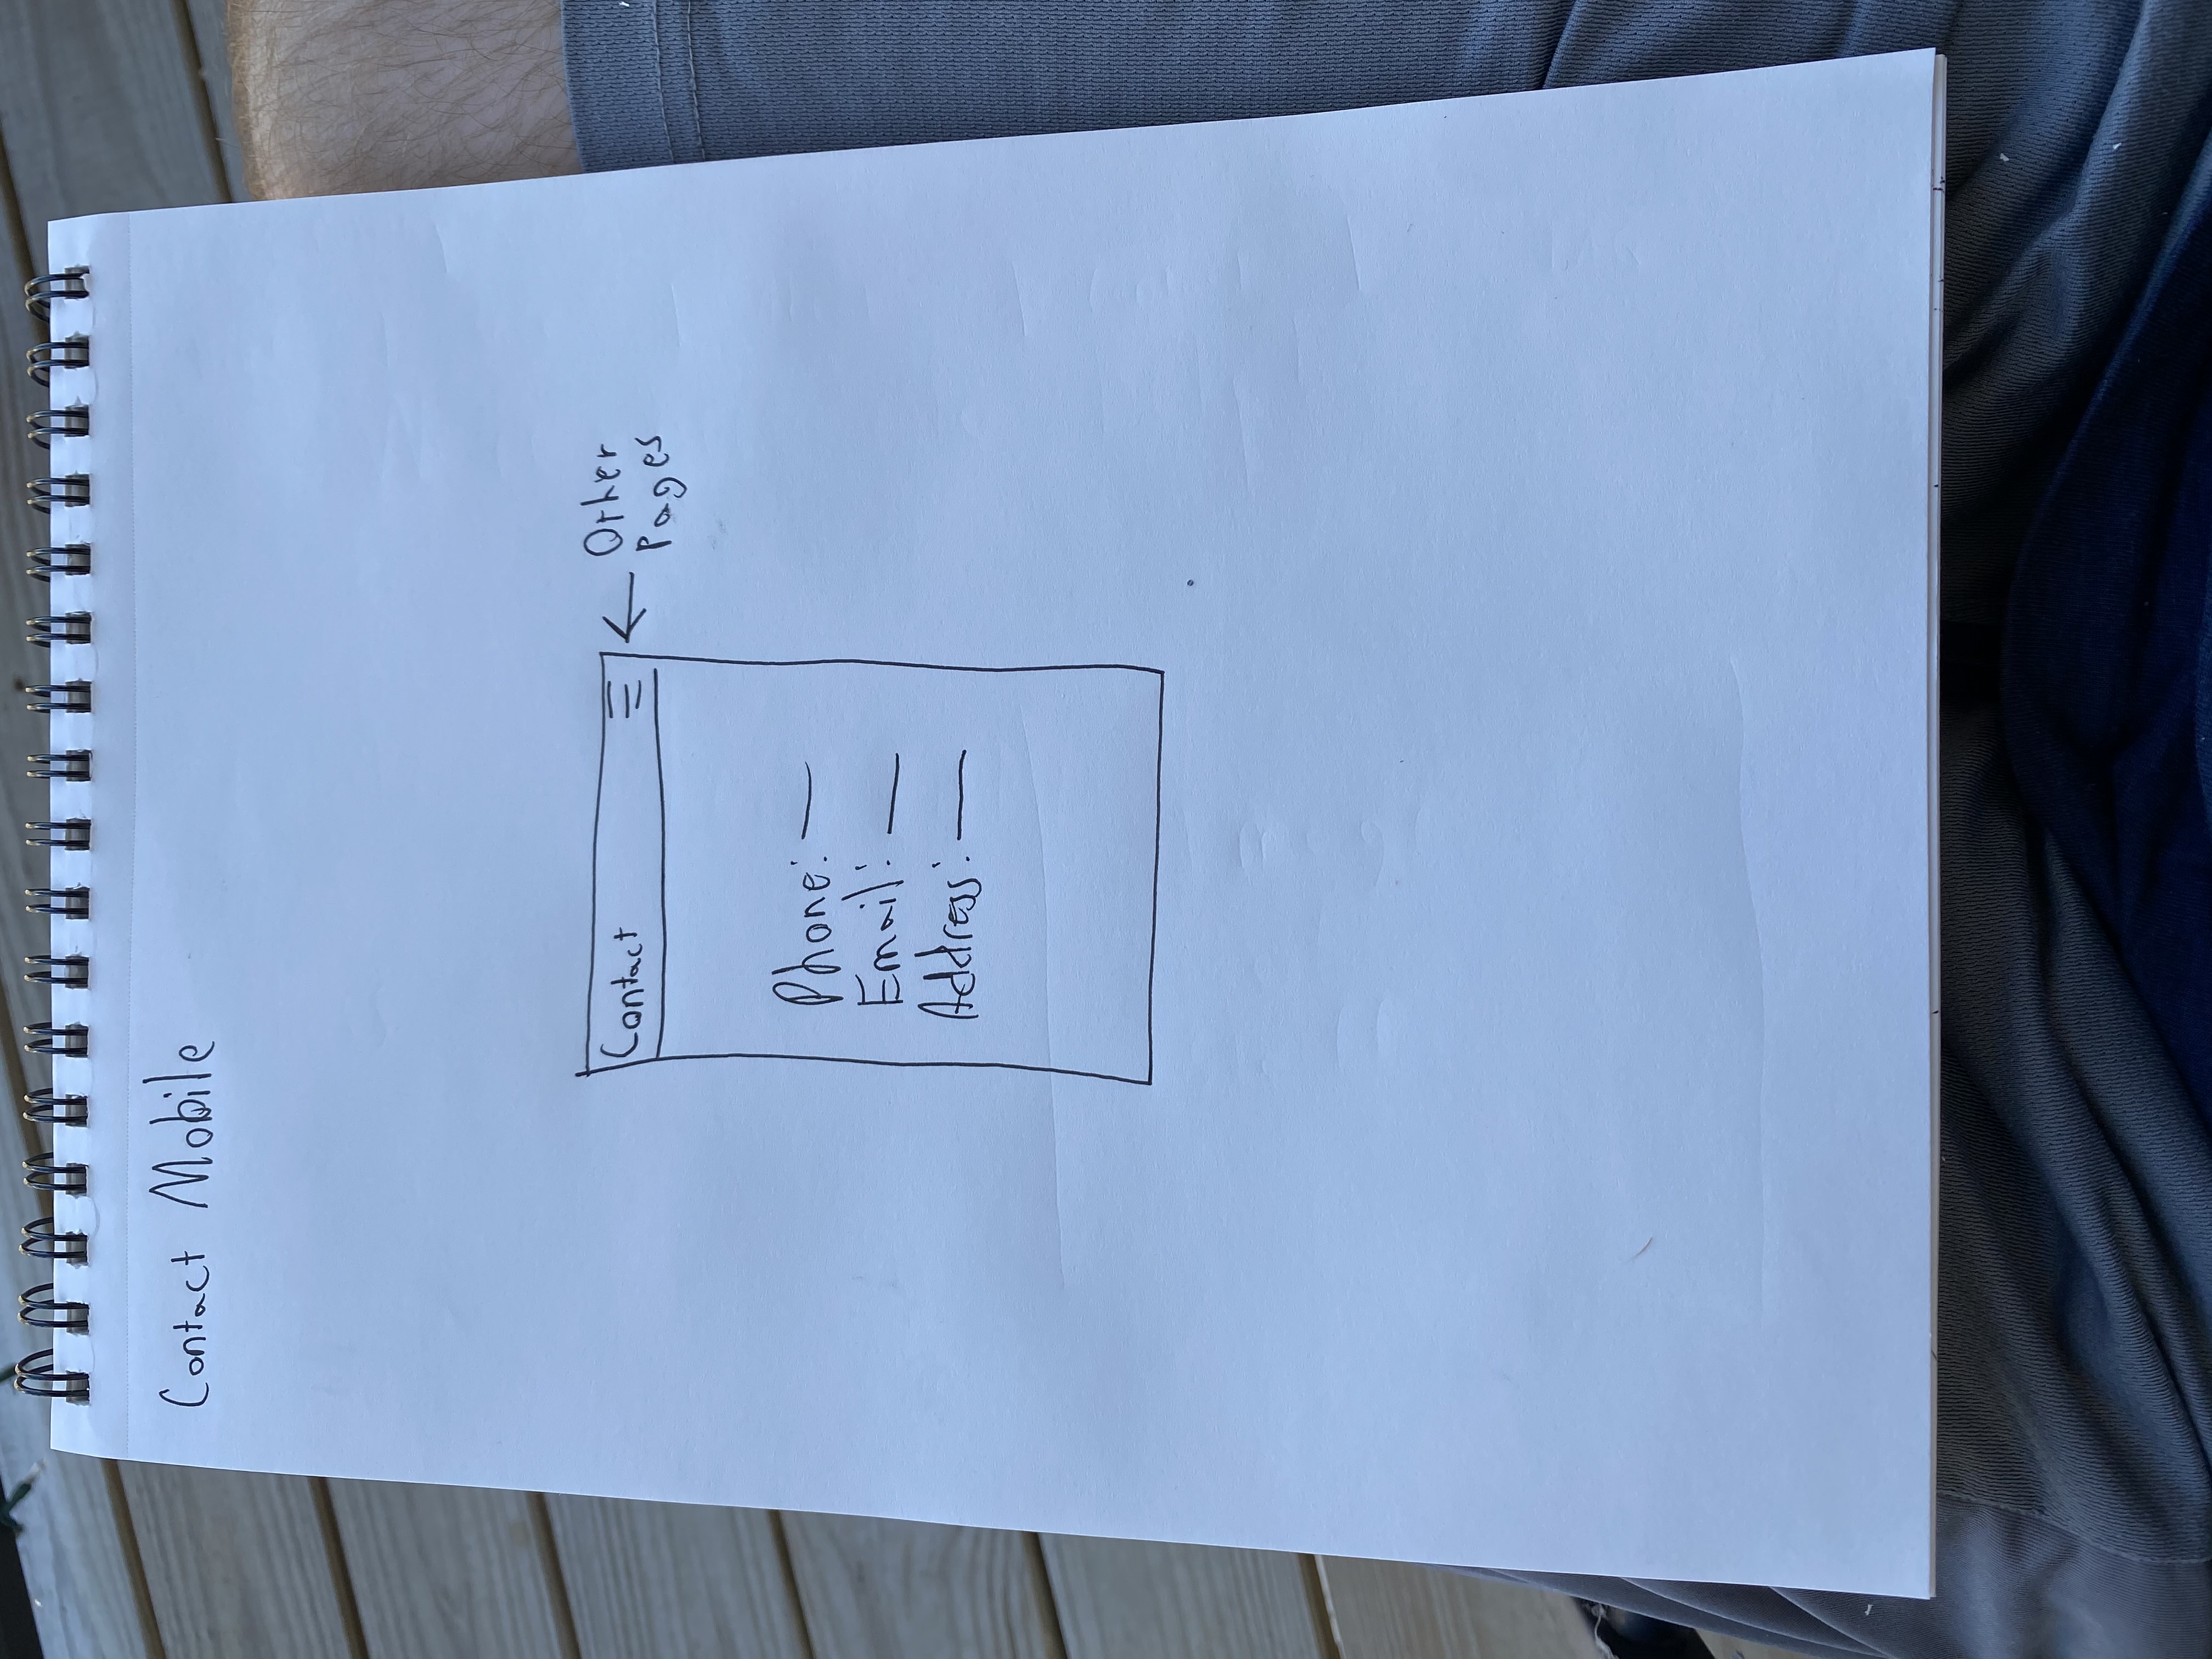 Contact Mobile
Contact
Other
Pages
Phone:
Email:
Address: